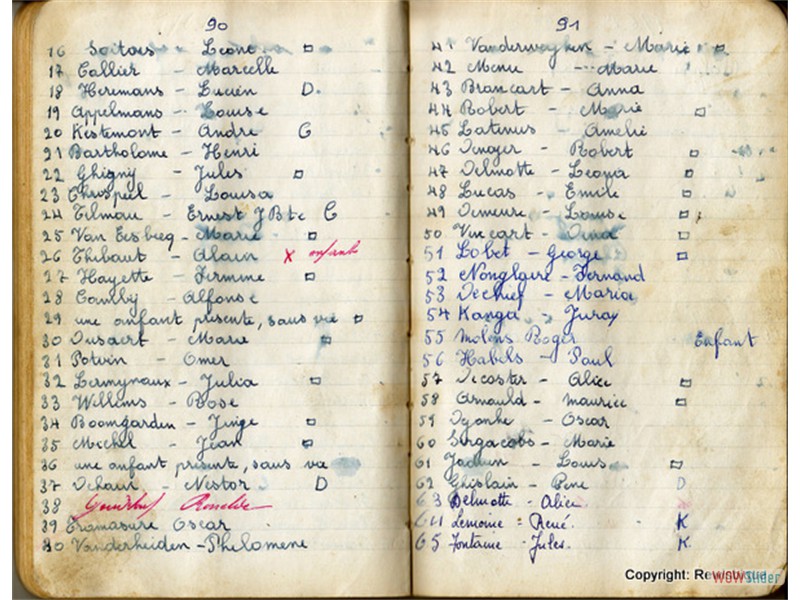 90
16 Soitois - Leone □
17 Callier - Marcelle
18 Heremans - Lucien D.
19 Appelmans - Louise
20 Kestemont - André C
21 Bartholome - Henri
22 Ghigny - Jules □
23 Louisa
24 Tilmau - Ernest JBte C
25 Van Eesbeeg - Marie □
26 Thibaut - Alain X enfants
27 Hayette - Firmine □
28 Camby - Alfonse
29 une anfant présente, sans vie □
30 Dusaert - Marie □
31 Potvin - Omer
32 Lermynaux - Julia □
33 Willems - Rose
34 Boomgarden - □
35 Michel - Jean □
36 une anfant présente, sans vie
37 Dehain - Nestor D
38
39 Eramasure Oscar
40 Vanderheiden - Philomene
91
41 Vanderweyhen - Marie □
42 Menu - Marie
43 Brancart - Anna
44 Robert - Marie □
45 Latinus - Amelié
46 Robert □
47 Delmotte - Leona □
48 Lucas - Emile □
49 Demeure - Louise □
50 Vincart - □
51 Lobet - George □
52 Nonglaire - Fernand
53 Dechief - Maria
54 Kanga - Juray
55 Molens Roger Enfant
56 Habels - Paul
57 Decoster - Alice □
58 Arnauld - Maurice □
59 Oscar
60 Sergacobs - Marie
61 Louis □
62 Ghislain - Rene D
63 Delmotte - Alice
64 Lemoine = René. K
65 Fontaine - Jules. K
Copyright: 
WOWSlider